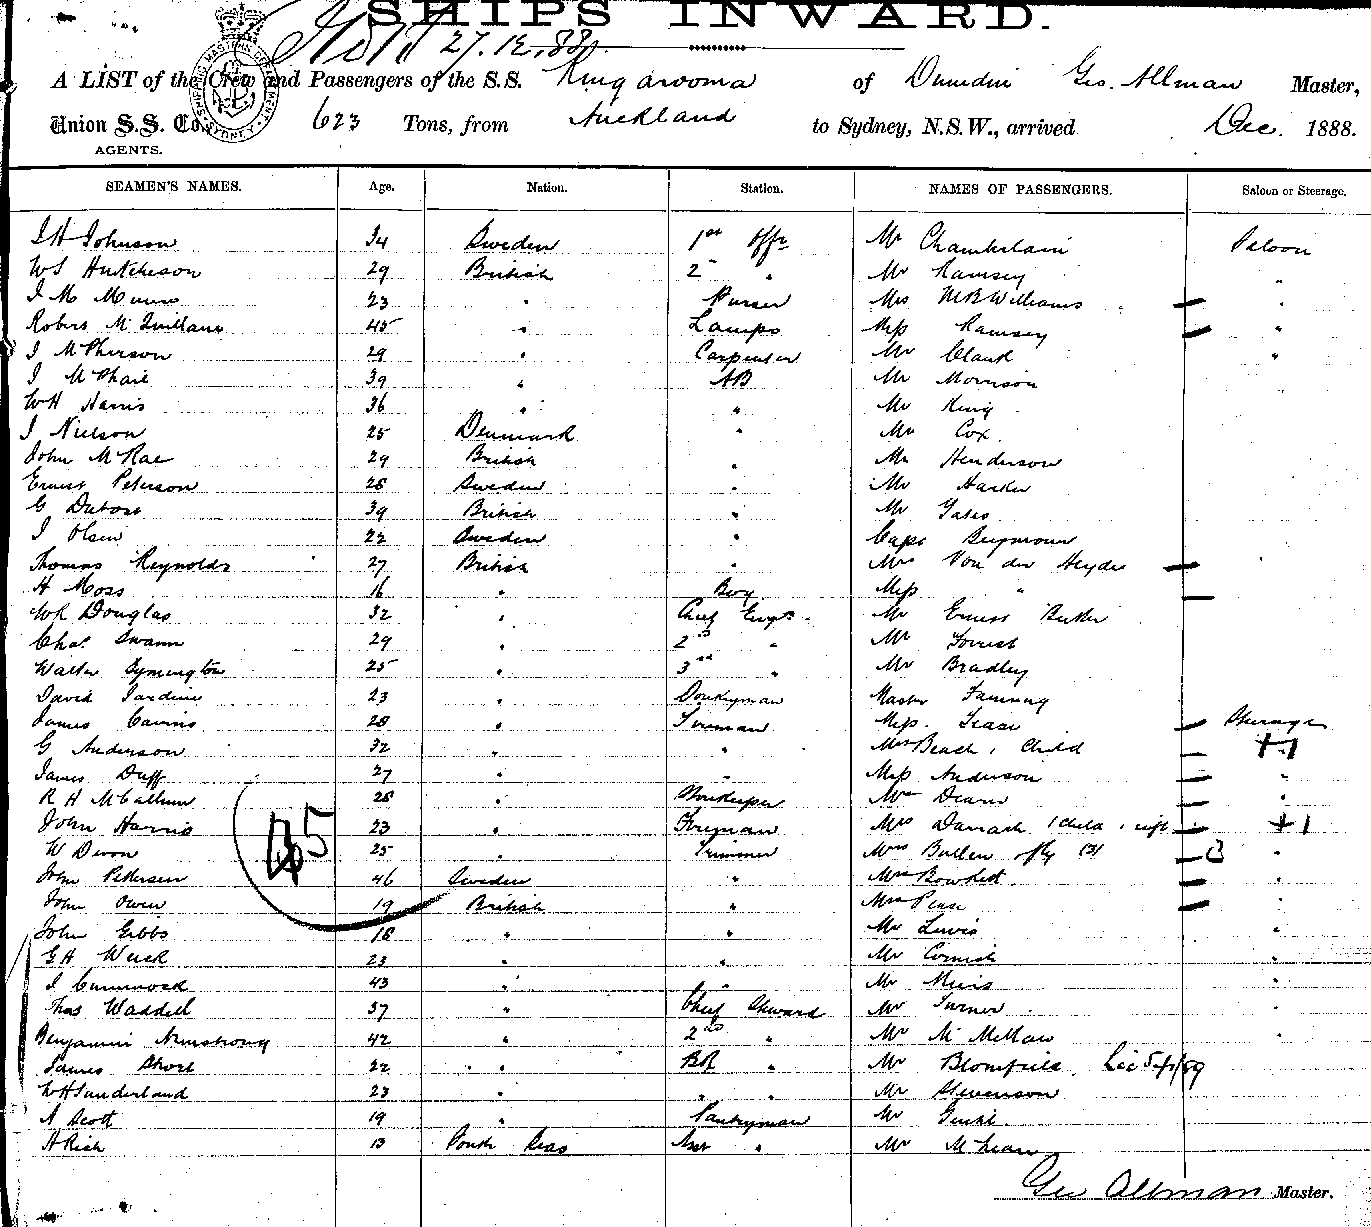 SHIPS INWARD.
27.12.88
A LIST of the Crew and Passengers of the S.S. Ringarooma of Dunedin Geo. Allman Master,
Union S.S. Co. 623 Tons, from Auckland to Sydney, N.S.W., arrived Dec. 1888.
AGENTS.
SHIPPING MASTERS DEPARTMENT SYDNEY
SEAMEN'S NAMES. Age. Nation. Station. NAMES OF PASSENGERS. Saloon or Steerage.
I H Johnson 34 Sweden 1st Offr Mr Chamberlain Saloon
WS Hutcheson 29 British 2nd " Mr Ramsey "
I M Munro 23 " Purser Mrs McBWilliams "
Robert McQuillane 45 " Lamps Miss Ramsey "
I McPherson 29 " Carpenter Mr Clark "
I McPhail 39 " AB Mr Morrison
WH Harris 36 " " Mr King
I Nielson 25 Denmark " Mr Cox
John McRae 29 British " Mr Henderson
Ernest Peterson 28 Sweden " Mr Harker
G 39 British " Mr Gates
I Olsen 22 Sweden " Capt Seymour
Thomas Reynolds 27 British " Mrs Von der Heyde
H Moss 16 " Boy Miss "
WR Douglas 32 " Chief Engr. Mr Ernest
Chas. Swann 29 " 2nd " Mr Forrest
Walter Symington 25 " 3rd " Mr Bradley
David Jardine 23 " Donkeyman Master Fanning
James Cairns 28 " Fireman Miss Steerage
G Anderson 32 " " Mrs Beach 1 Child +1
James Duff 27 " " Miss Anderson "
R H McCallum 28 " Storekeeper Mrs Deane "
John Harris 23 " Fireman Mrs Darrach 1 Child 1 +1
W Devon 25 " Trimmer Mrs Bullen (3) 3 "
John Pettersen 46 Sweden " Mrs "
John Owen 19 British " Mrs Pease "
John Gibbs 18 " " Mr Lewis "
G H 23 " " Mr Cornish "
I Cummock 43 " " Mr "
Thos Waddell 37 " Chief Steward Mr Turner "
Benjamin Armstrong 42 " 2nd " Mr "
James Short 22 " " Mr Blomfield
WH Sunderland 23 " " " Mr Stevenson
A Scott 19 " Pantryman Mr
A Rich 13 South Seas Asst " Mr McLean
Geo Allman Master.